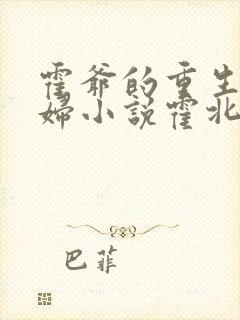 霍爷的重生
婦小説霍北
巴菲